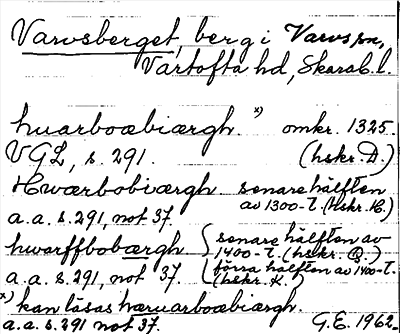 Varvsberget, berg i Varvs sn,
Vartofta hd, Skarab. l.
huarboæbiærgh. x) omkr. 1325.
VGL, s. 291. (hskr. D.)
Hwærbobiærgh senare hälften
av 1300-t. (hskr. H.)
a.a. s. 291, not 37.
hwarffbobærgh { senare hälften av
1400-t. (hskr. G.)
a.a. s. 291, not 37. { förra hälften av 1400-t.
(hskr. K.)
x) kan läsas hæruarboæbiærgh.
a.a. s. 291 not 37. G.E. 1962.